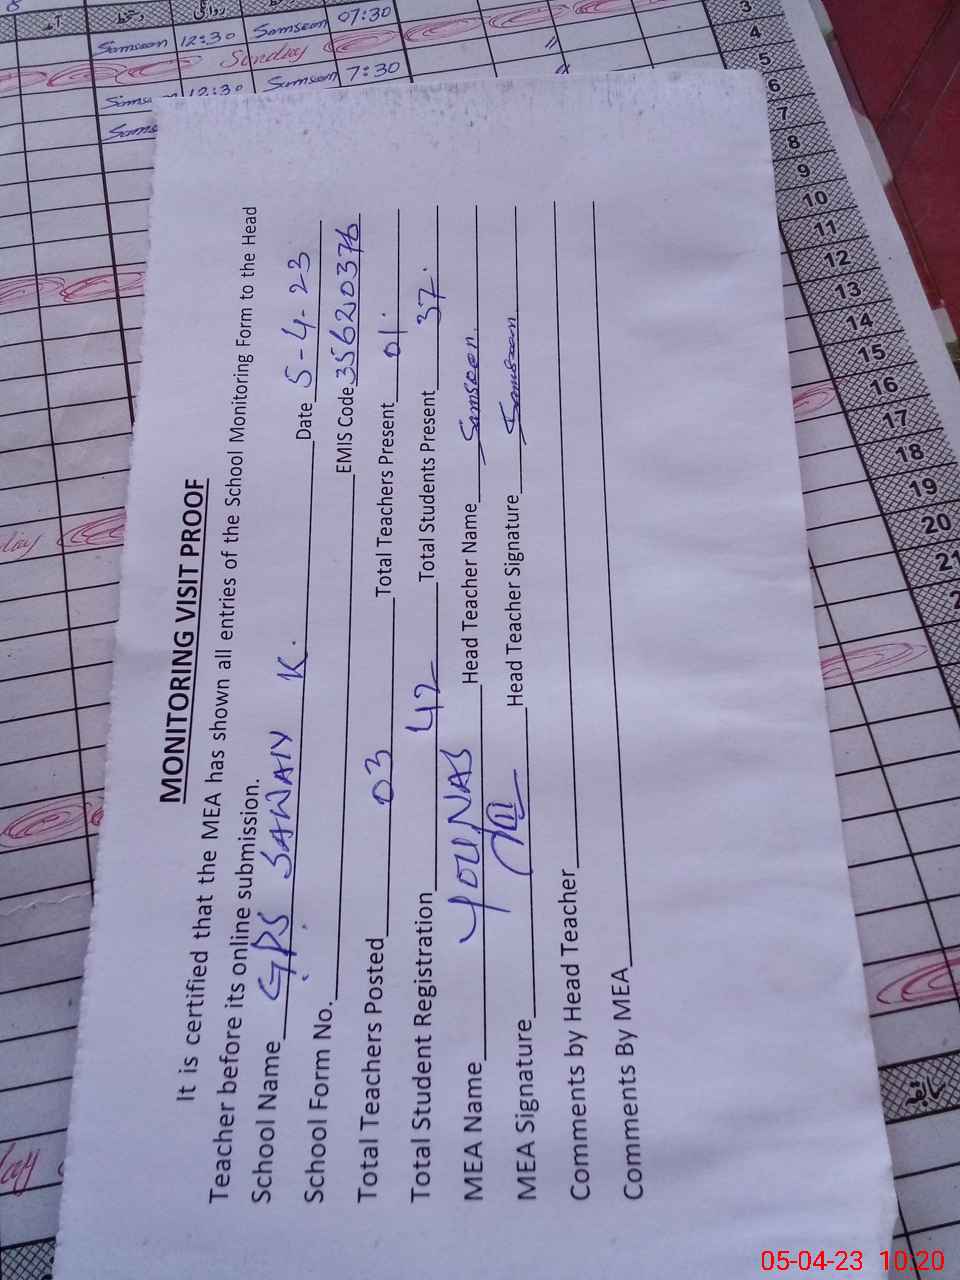 MONITORING VISIT PROOF
It is certified that the MEA has shown all entries of the School Monitoring Form to the Head
Teacher before its online submission.
School Name GPS SAWAIY K. Date 5-4-23
School Form No. EMIS Code 35620376
Total Teachers Posted 03 Total Teachers Present 01.
Total Student Registration 42 Total Students Present 37.
MEA Name YOUNAS Head Teacher Name Samseon.
MEA Signature Head Teacher Signature Samseon
Comments by Head Teacher
Comments By MEA
Samseon 12:30 Samseon 07:30
Sunday
12:30 Samseon 7:30
3
4
5
6
7
8
9
10
11
12
13
14
15
16
17
18
19
20
21
سابقہ
05-04-23 10:20